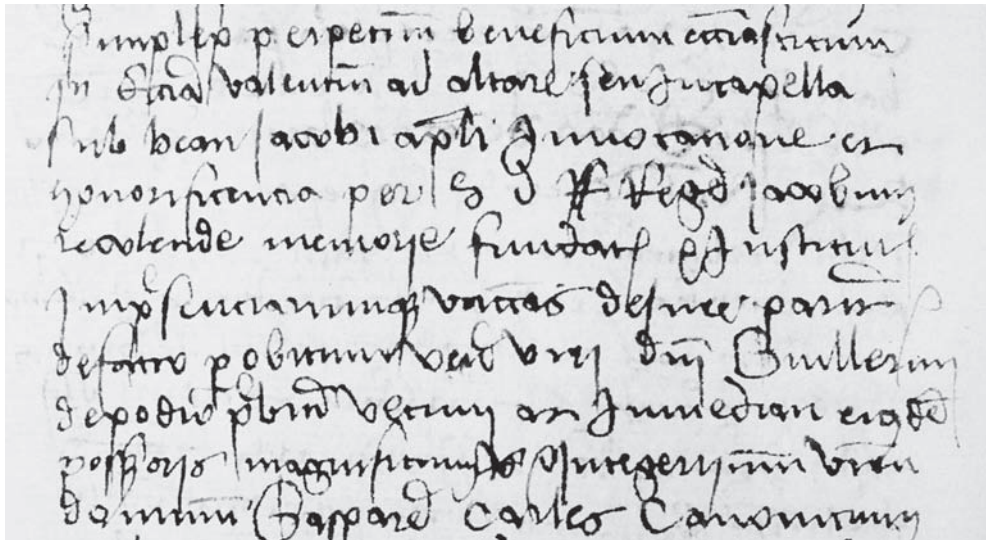 simplex perpetuu beneficium eccliasticum
in Ecclia valentin ad altare seu in capella
sub beati Jacobi apli Invocatione et
honorificencia per S d Regē Jacobum
recolende memorie fundat et Institut
Impresenciarumque vaccās de jure pariter
de facto per obitum vend viri dni Guillermi
de podio pbri vltimi ac Immediati eiusdē
possessoris magnificum et Integerrimum virum
dominum Gaspare Carles Canonicum